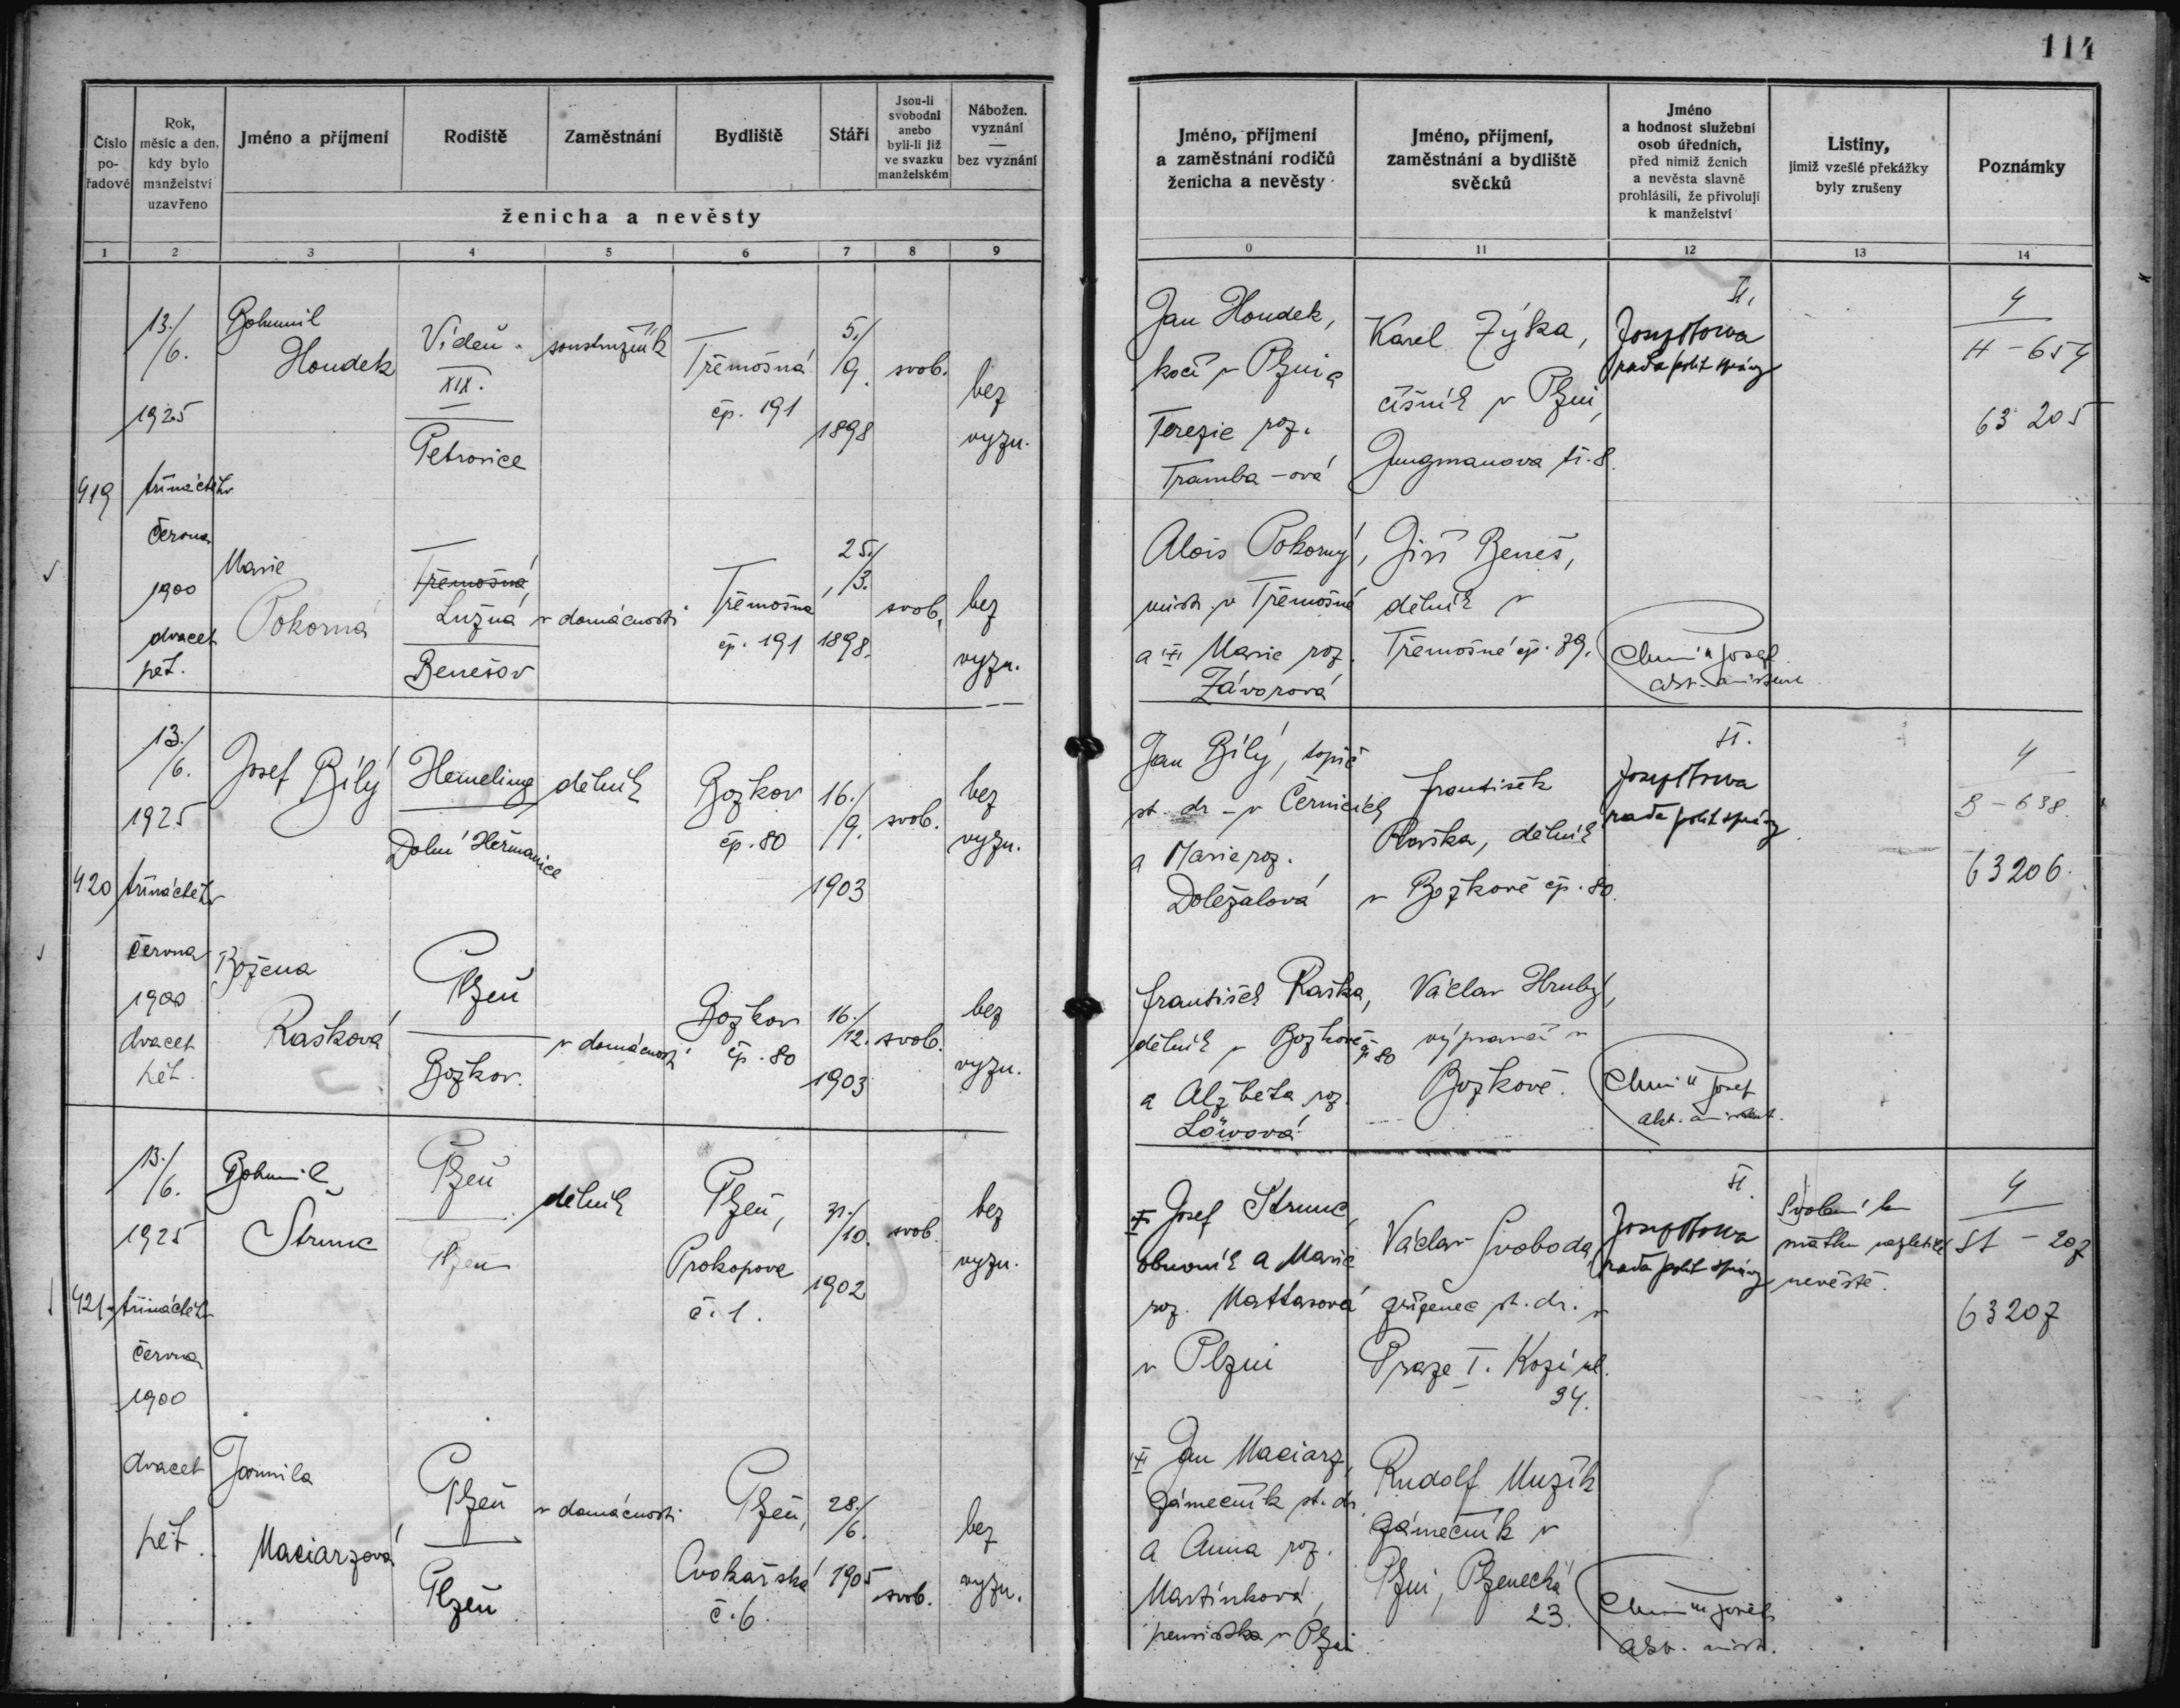 114
Číslo
po-
řadové
Rok,
měsíc a den,
kdy bylo
manželství
uzavřeno
Jméno a příjmení
Rodiště
Zaměstnání
Bydliště
Stáří
Jsou-li
svobodni
anebo
byli-li již
ve svazku
manželském
Nábožen.
vyznání
—
bez vyznání
ženicha a nevěsty
1 2 3 4 5 6 7 8 9
Jméno, příjmení
a zaměstnání rodičů
ženicha a nevěsty
Jméno, příjmení,
zaměstnání a bydliště
svědků
Jméno
a hodnost služební
osob úředních,
před nimiž ženich
a nevěsta slavně
prohlásili, že přivolují
k manželství
Listiny,
jimiž vzešlé překážky
byly zrušeny
Poznámky
0 11 12 13 14
419
13./
/6.
1925
třináctého
června
1900
dvacet
pět.
Bohumil
Houdek
Vídeň
XIX.
Petrovice
soustružník
Třemošná
čp. 191
5./
/9.
1898
svob.
bez
vyzn.
Jan Houdek,
kočí v Plzni a
Terezie roz.
Tramba-ová
Karel Zýka,
číšník v Plzni,
Jungmanova tř. 8.
rada polit správy
4
H - 654
63205
Marie
Pokorná
Třemošná,
Lužná
Benešov
v domácnosti
Třemošná
čp. 191
25./
/3.
1898.
svob.
bez
vyzn.
Alois Pokorný,
v Třemošné
a Marie roz.
Závorová
Jiří Beneš,
dělník v
Třemošné čp. 79.
Josef
420
13./
/6.
1925
třináctého
června
1900
dvacet
pět.
Josef Bílý
Hemeling
Dolní Heřmanice
dělník
Božkov
čp. 80
16./
/9.
1903
svob.
bez
vyzn.
Jan Bílý, topič
st. dr. v Černicích
a Marie roz.
Doležalová
František
Raška, dělník
v Božkově čp. 80.
rada polit správy
4
B - 638.
63206.
Božena
Rašková
Plzeň
Božkov.
v domácnosti
Božkov
čp. 80
16./
/12.
1903
svob.
bez
vyzn.
František Raška,
dělník v Božkově čp. 80
a Alžběta roz.
Löwová
Václav Hrubý,
výpravčí v
Božkově.
Josef
421
13./
/6.
1925
třináctého
června
1900
dvacet
pět.
Bohumil
Strunc
Plzeň
Plzeň
dělník
Plzeň,
Prokopova
č. 1.
31./
/10.
1902
svob.
bez
vyzn.
Josef Strunc,
obuvník a Marie
roz. Mattasová
v Plzni
Václav Svoboda
zřízenec st. dr. v
Praze I. Kozí ul.
34.
rada polit správy
nezletilé
nevěstě.
4
St - 207
63207
Jarmila
Maciarzová
Plzeň
Plzeň
v domácnosti
Plzeň,
Cvokařská
č. 6.
28./
/6.
1905
svob.
bez
vyzn.
Jan Maciarz,
zámečník st. dr.
a Anna roz.
Martínková,
pensistka v Plzni
Rudolf Muzík
zámečník v
Plzni, Plzenecká
23.
Josef